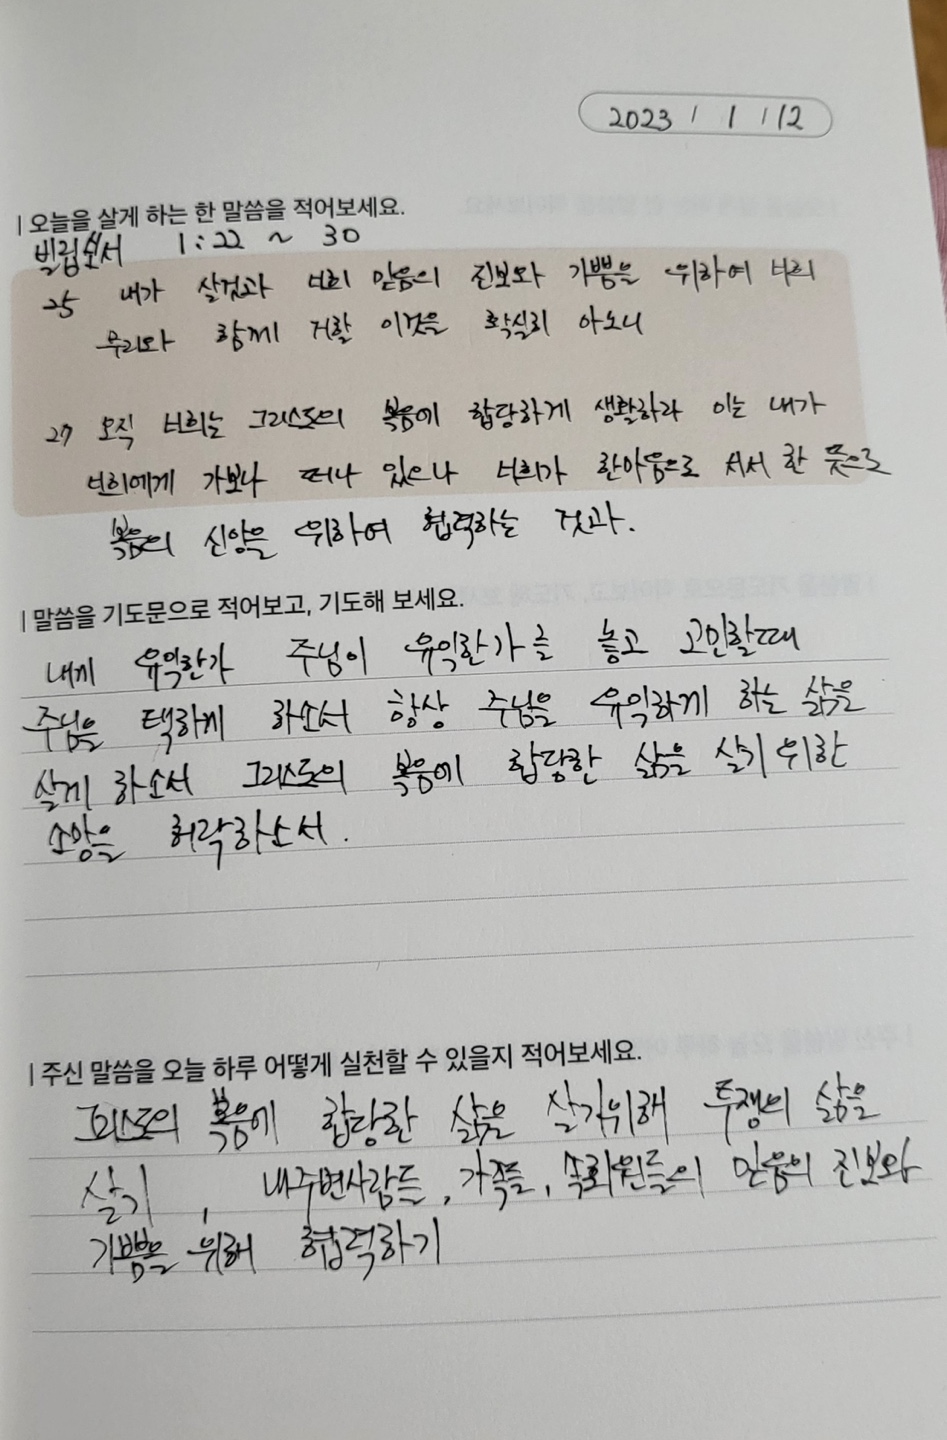 2023 / 1 / 12
| 오늘을 살게 하는 한 말씀을 적어보세요.
빌립보서 1:22 ~ 30
25 내가 살것과 너희 믿음의 진보와 기쁨을 위하여 너희
무리와 함께 거할 이것을 확실히 아노니
27 오직 너희는 그리스도의 복음에 합당하게 생활하라 이는 내가
너희에게 가보나 떠나 있으나 너희가 한마음으로 서서 한 뜻으로
복음의 신앙을 위하여 협력하는 것과.
| 말씀을 기도문으로 적어보고, 기도해 보세요.
내게 유익한가 주님이 유익한가를 놓고 고민할때
주님을 택하게 하소서 항상 주님을 유익하게 하는 삶을
살게 하소서 그리스도의 복음에 합당한 삶을 살기 위한
소망을 허락하소서.
| 주신 말씀을 오늘 하루 어떻게 실천할 수 있을지 적어보세요.
그리스도의 복음에 합당한 삶을 살기위해 투쟁의 삶을
살기, 내주변사람들, 가족들, 속회원들의 믿음의 진보와
기쁨을 위해 협력하기